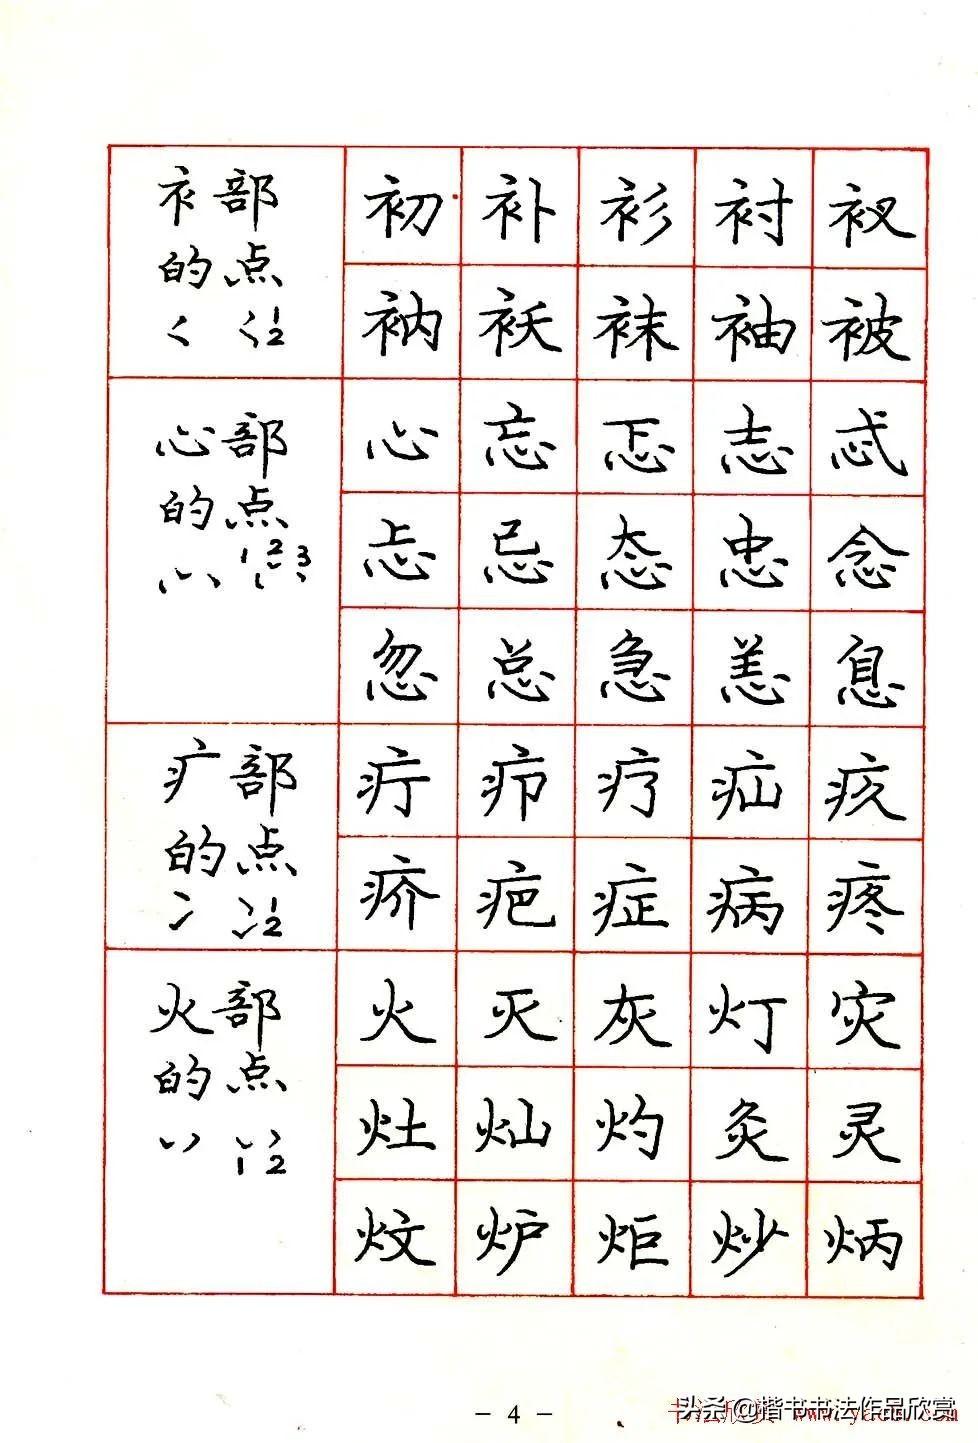 衤部
的点
初补衫衬衩
衲袄袜袖被
心部
的点
1 2 3
心忘忑志忒
忐忌态忠念
忽总急恙息
疒部
的点
1
2
疔疖疗疝疚
疥疤症病疼
火部
的点
1 2
火灭灰灯灾
灶灿灼灸灵
炆炉炬炒炳
- 4 -
头条@楷书书法作品欣赏